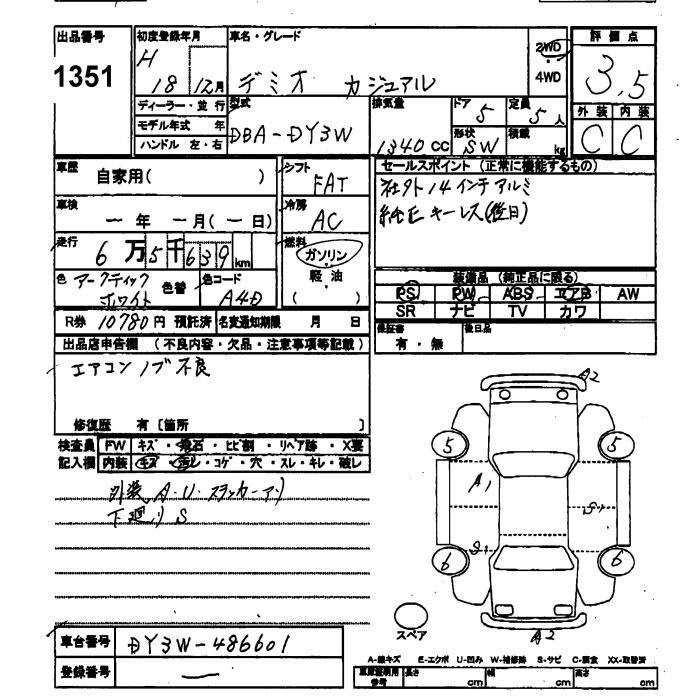 出品番号 1351
初度登録年月 H 18 12月
車名・グレード デミオ カジュアル
2WD・4WD
評価点 3.5
外装 内装
C C
ディーラー・並行
モデル年式 年
ハンドル 左・右
型式 DBA-DY3W
排気量 1340 CC
ドア 5
形状 SW
定員 5人
積載 kg
車歴 自家用( )
シフト FAT
セールスポイント(正常に機能するもの)
社外14インチアルミ
純正キーレス(後日)
車検 ー年 ー月(ー日)
冷房 AC
走行 6万5千639km
燃料 ガソリン
軽・油
( )
色 アークティックホワイト 色替
色コード A4D
装備品(純正品に限る)
PS PW ABS エアB AW
SR ナビ TV カワ
R券 10780円 預託済 名変通知期限 月 日
保証書 有・無
後日品
出品店申告欄(不良内容・欠品・注意事項等記載)
エアコンノブ不良
修復歴 有〔箇所 〕
検査員記入欄
FW キズ・飛石・ヒビ割・リペア跡・X要
内装 キズ・汚レ・コゲ・穴・スレ・キレ・破レ
外装 A・U・ステッカーアリ
下廻り S
A2
5 5
A1
S1
S1
6 6
A2
スペア
車台番号 DY3W-486601
登録番号 ー
A-線キズ E-エクボ U-凹み W-補修跡 S-サビ C-腐食 XX-取替済
車庫証明用参考 長さ cm 幅 cm 高さ cm